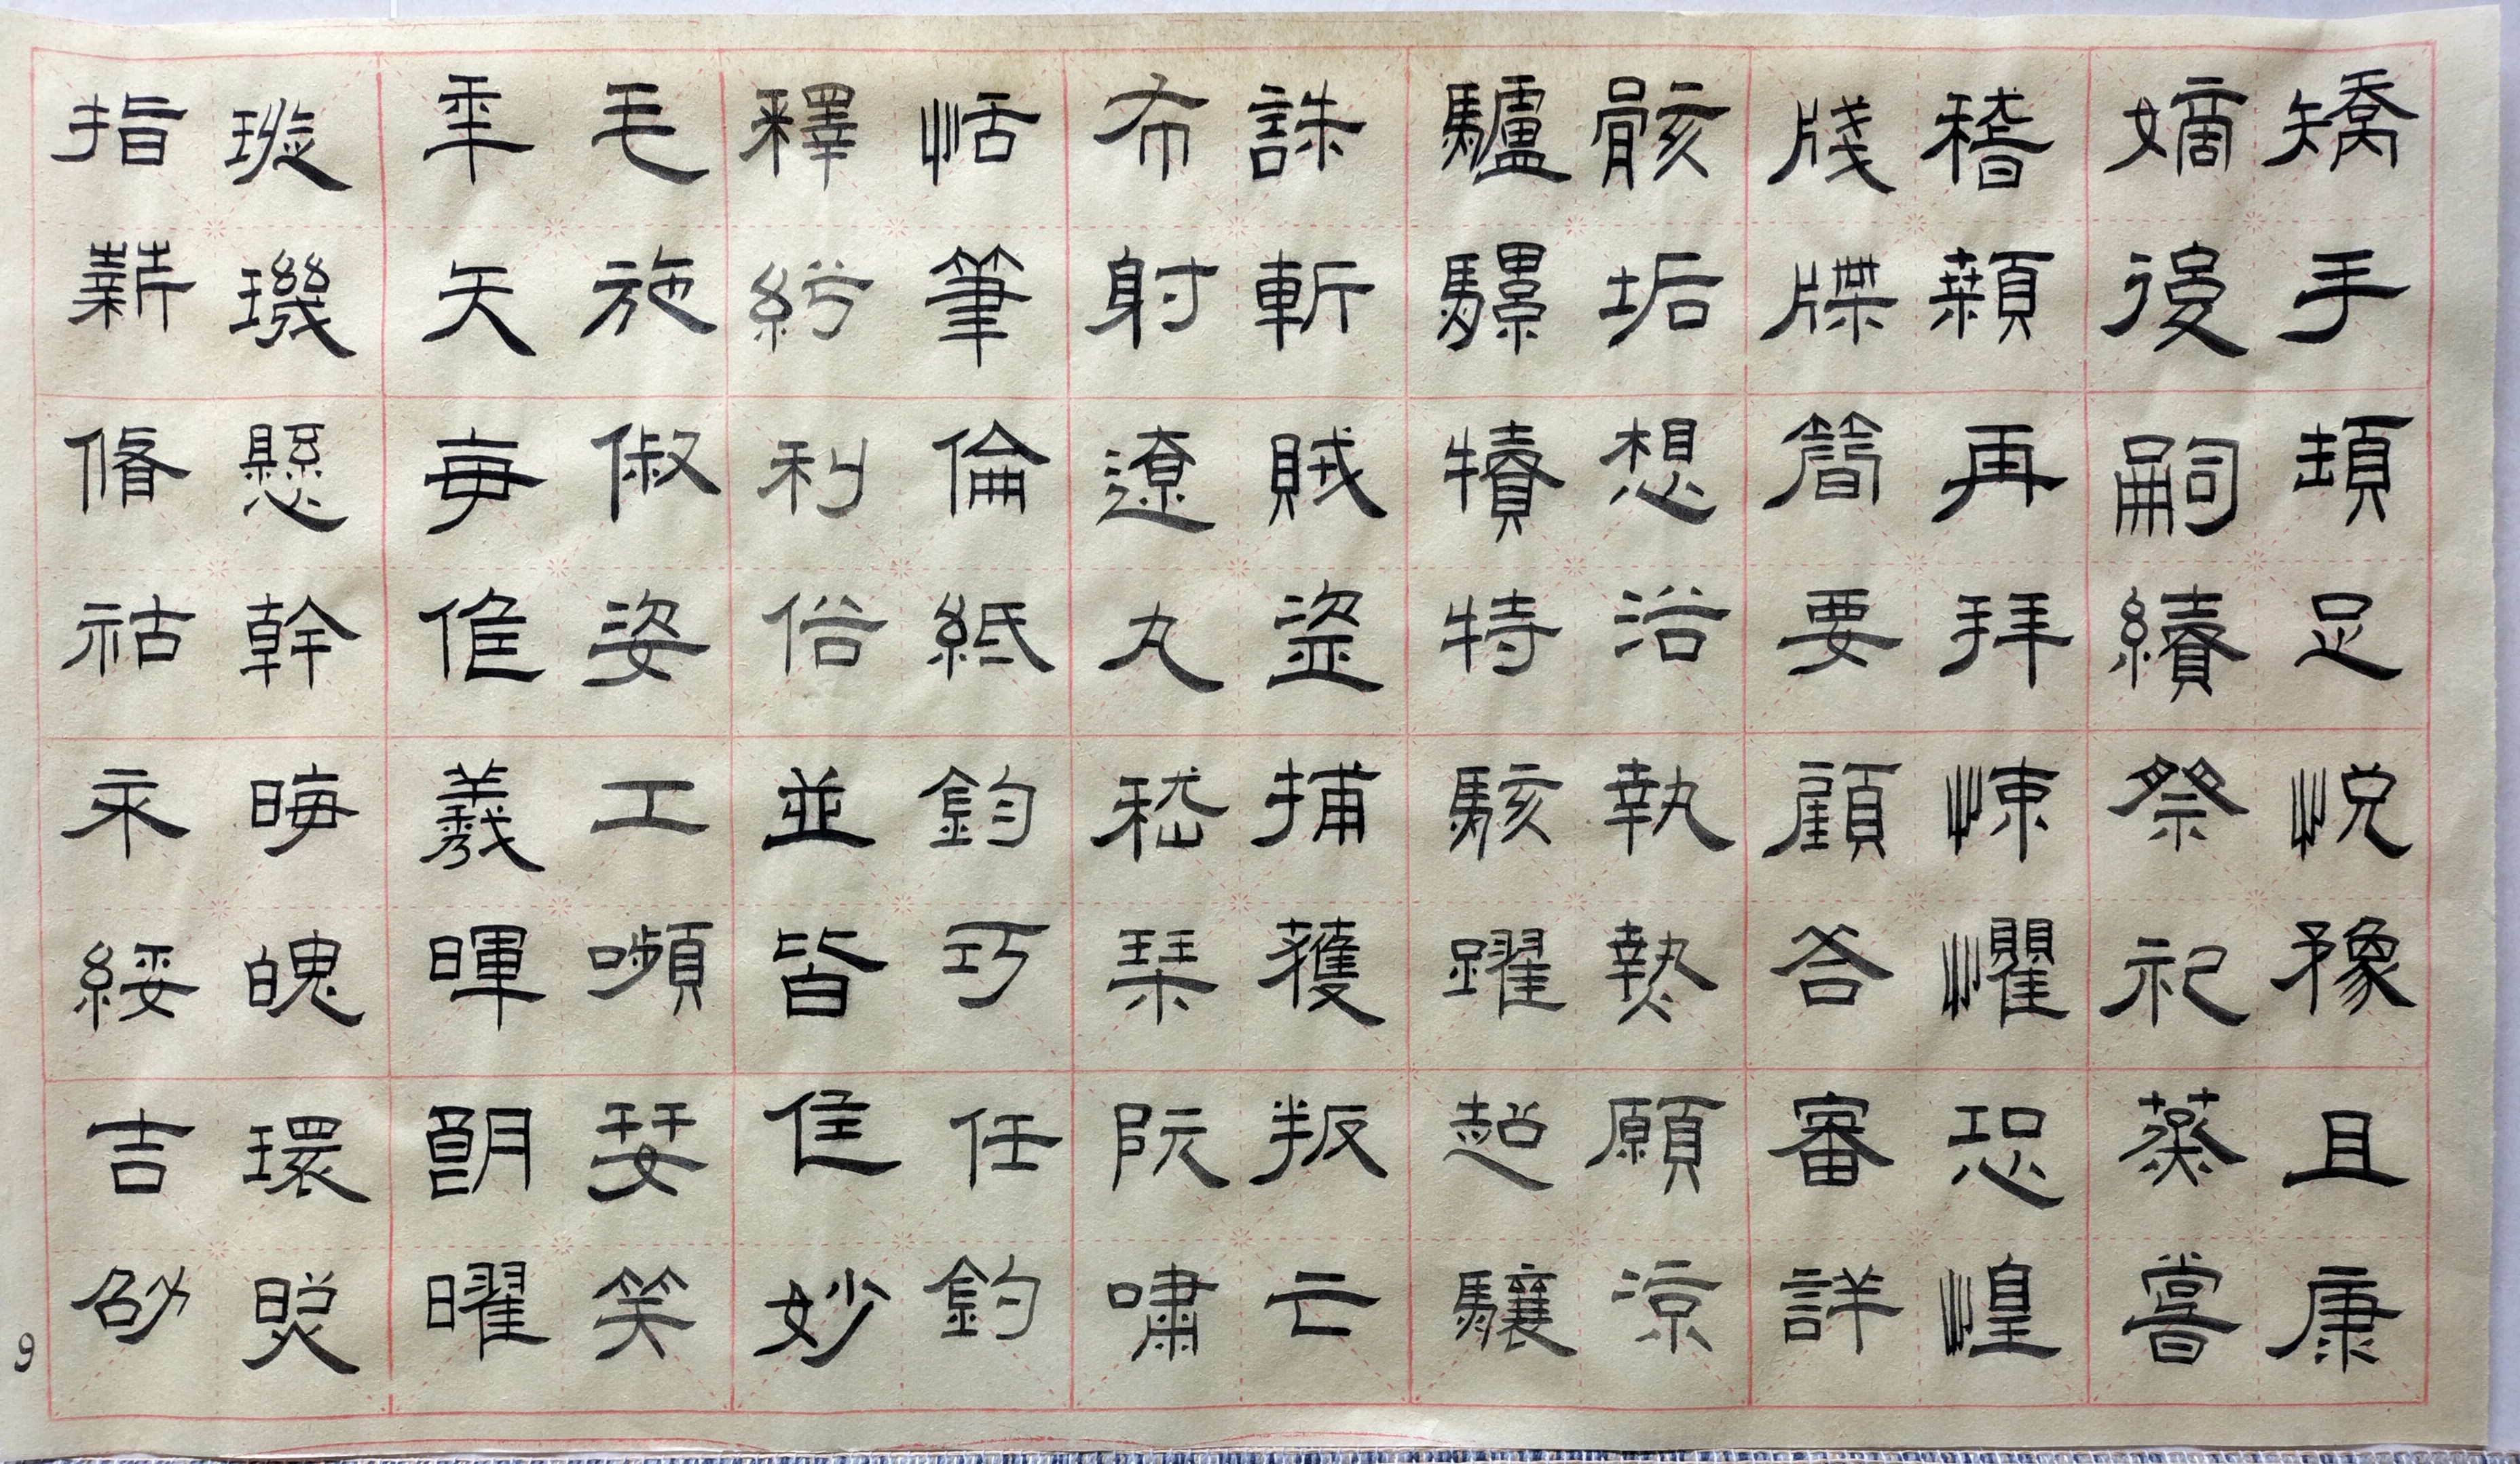 矯手頓足悅豫且康
嫡後嗣續祭祀蒸嘗
稽顙再拜悚懼恐惶
牋牒簡要顧荅審詳
骸垢想浴執熱願涼
驢騾犢特駭躍超驤
誅斬賊盜捕獲叛亡
布射遼丸嵇琴阮嘯
恬筆倫紙鈞巧任釣
釋紛利俗並皆佳妙
毛施俶姿工嚬妍笑
年矢每催羲暉朗曜
璇璣懸斡晦魄環照
指薪脩祜永綏吉劭
9